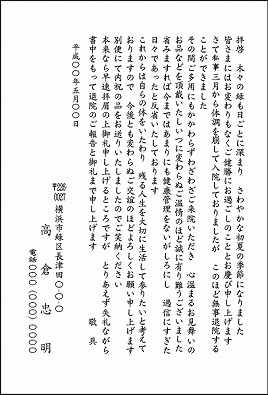 拝啓　木々の緑も日ごとに深まり　さわやかな初夏の季節になりました
皆さまにはお変わりもなくご健勝にお過ごしのこととお慶び申し上げます
さて私事三月から体調を崩して入院しておりましたが　このほど無事退院する
ことができました
その間ご多用にもかかわらずわざわざご来院いただき　心温まるお見舞いの
お品などを頂戴いたしていつに変わらぬご温情のほど誠に有り難うございました
省みますれば今まではあまりにも健康管理をないがしろにし　過信にすぎた
日々であったと反省いたしております
これからは自らの体をいたわり　残る人生を大切に生活して参りたいと考えて
おりますので　今後とも変わらぬご交誼のほどよろしくお願い申し上げます
別便にて内祝の品をお送りいたしましたのでご笑納ください
本来なら早速拝眉の上御礼申し上げるところですが　とりあえず失礼ながら
書中をもって退院のご報告と御礼まで申し上げます
敬具
平成〇〇年五月〇〇日
〒226-0027　横浜市緑区長津田〇-〇-〇
高倉忠明
電話　〇〇〇（〇〇〇）〇〇〇〇